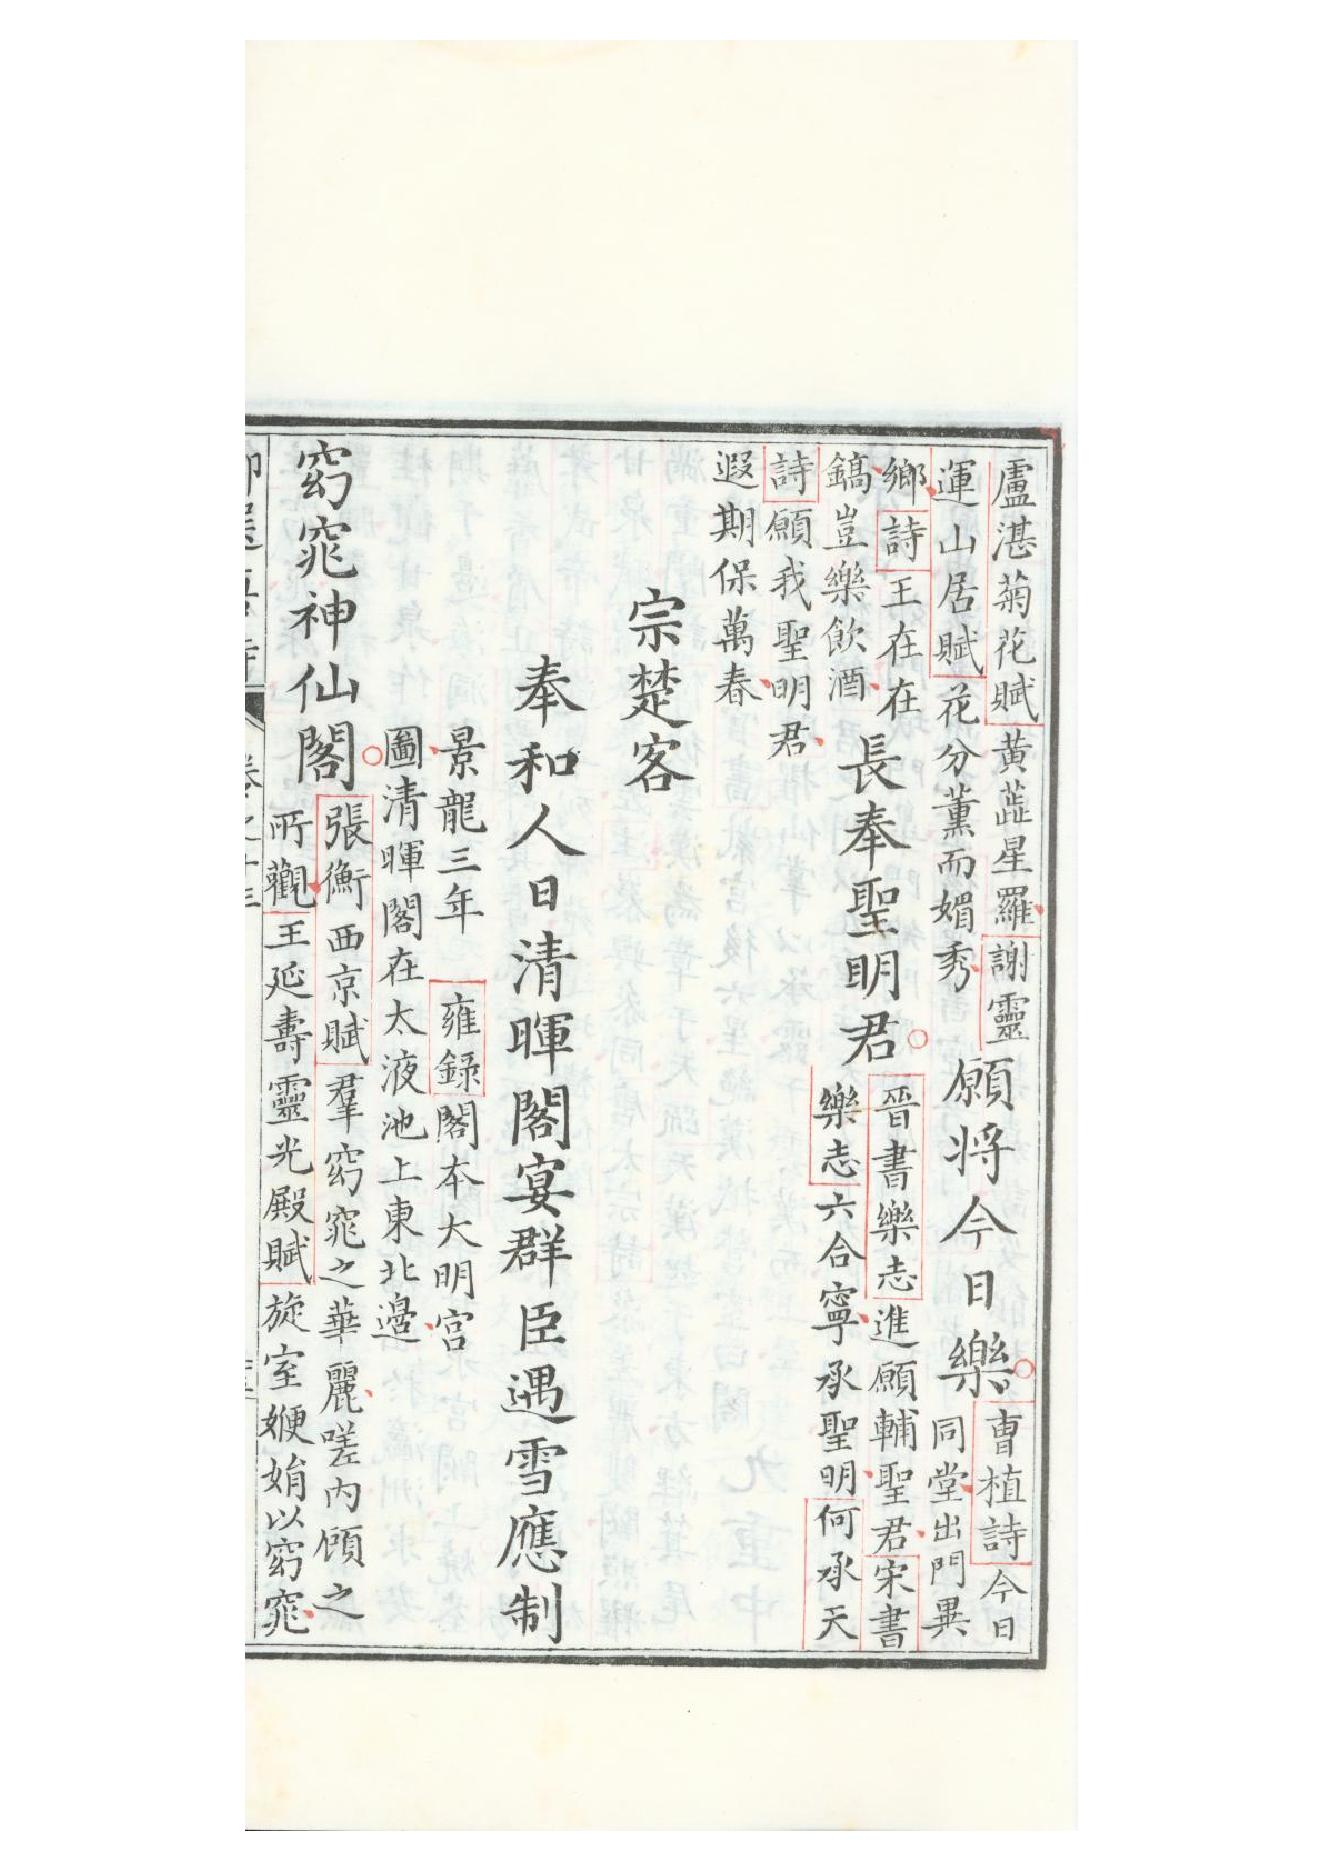 盧湛菊花賦黃星羅謝靈
運山居賦花分薰而媚秀
願將今日樂
曹植詩今日
同堂出門異
鄉詩王在在
鎬豈樂飲酒
長奉聖明君
晉書樂志進願輔聖君宋書
樂志六合寧承聖明何承天
詩願我聖明君
遐期保萬春
宗楚客
奉和人日清暉閣宴群臣遇雪應制
景龍三年 雍錄閣本大明宮
圖清暉閣在太液池上東北邊
窈窕神仙閣
張衡西京賦羣窈窕之華麗嗟內顧之
所觀王延壽靈光殿賦旋室㛹娟以窈窕